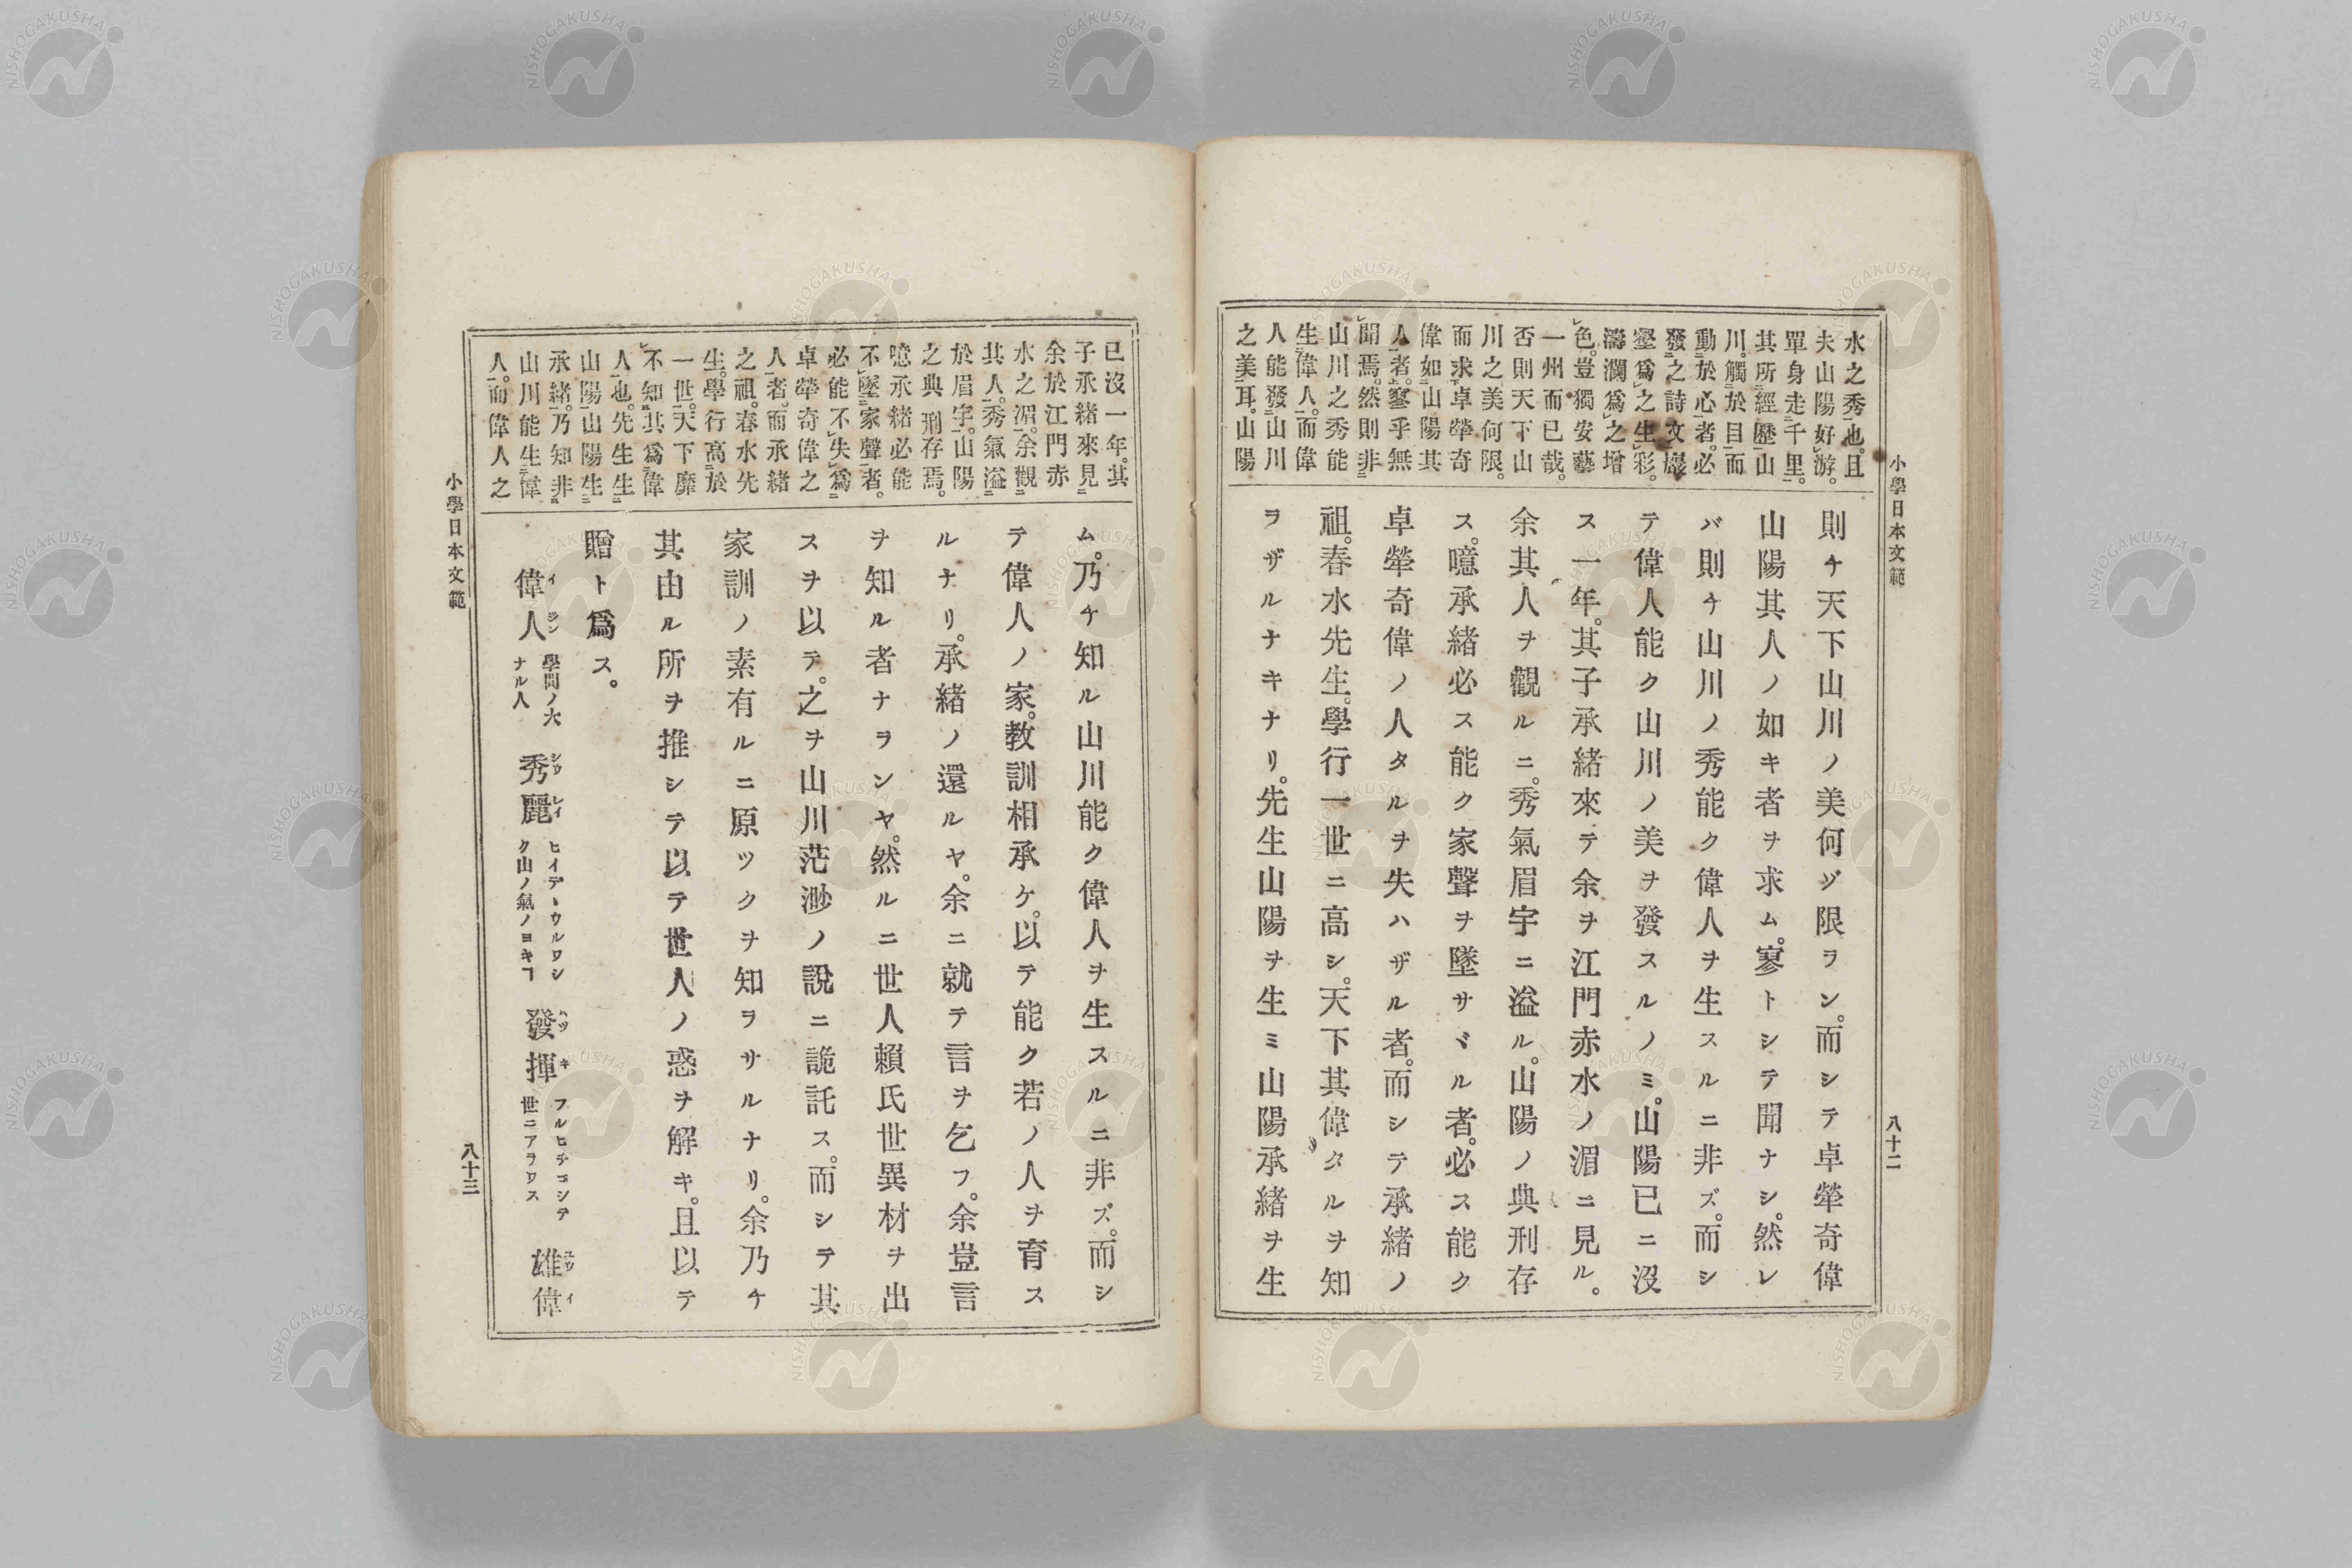 小學日本文範
八十二
水之秀也。且
夫山陽好游。
單身走千里。
其所經歷山
川。觸於目而
動於心者。必
發之詩文。巖
壑爲之生彩。
濤瀾爲之增
色。豈獨安藝
一州而已哉。
否則天下山
川之美何限。
而求卓犖奇
偉如山陽其
人者。寥乎無
聞焉。然則非
山川之秀能
生偉人。而偉
人能發山川
之美耳。山陽
則チ天下山川ノ美何ヅ限ラン。而シテ卓犖奇偉
山陽其人ノ如キ者ヲ求ム。寥トシテ聞ナシ。然レ
バ則チ山川ノ秀能ク偉人ヲ生スルニ非ズ。而シ
テ偉人能ク山川ノ美ヲ發スルノミ。山陽已ニ沒
ス一年。其子承緒來テ余ヲ江門赤水ノ湄ニ見ル。
余其人ヲ觀ルニ。秀氣眉宇ニ溢ル。山陽ノ典刑存
ス。噫承緒必ス能ク家聲ヲ墜サヾル者。必ス能ク
卓犖奇偉ノ人タルヲ失ハザル者。而シテ承緒ノ
祖。春水先生。學行一世ニ高シ。天下其偉タルヲ知
ヲザルナキナリ。先生山陽ヲ生ミ山陽承緒ヲ生
已沒一年。其
子承緒來見
余於江門赤
水之湄。余觀
其人。秀氣溢
於眉宇。山陽
之典刑存焉。
噫承緒必能
不墜家聲者。
必能不失爲
卓犖奇偉之
人者。而承緒
之祖。春水先
生。學行高於
一世。天下靡
不知其爲偉
人也。先生生
山陽山陽生
承緒。乃知非
山川能生偉
人。而偉人之
ム。乃チ知ル山川能ク偉人ヲ生スルニ非ズ。而シ
テ偉人ノ家。教訓相承ケ。以テ能ク若ノ人ヲ育ス
ルナリ。承緒ノ還ルヤ。余ニ就テ言ヲ乞フ。余豈言
ヲ知ル者ナヲンヤ。然ルニ世人賴氏世異材ヲ出
スヲ以テ。之ヲ山川茫渺ノ說ニ詭託ス。而シテ其
家訓ノ素有ルニ原ツクヲ知ヲサルナリ。余乃ケ
其由ル所ヲ推シテ以テ世人ノ惑ヲ解キ。且以テ
贈ト爲ス。
偉人 イジン 學問ノ大ナル人 秀麗 シウレイ ヒイデヽウルワシク山ノ氣ノヨキヿ 發揮 ハツキ フルヒテコシテ世ニアラワス 雄偉 ユウイ
小學日本文範
八十三
NISHOGAKUSHA